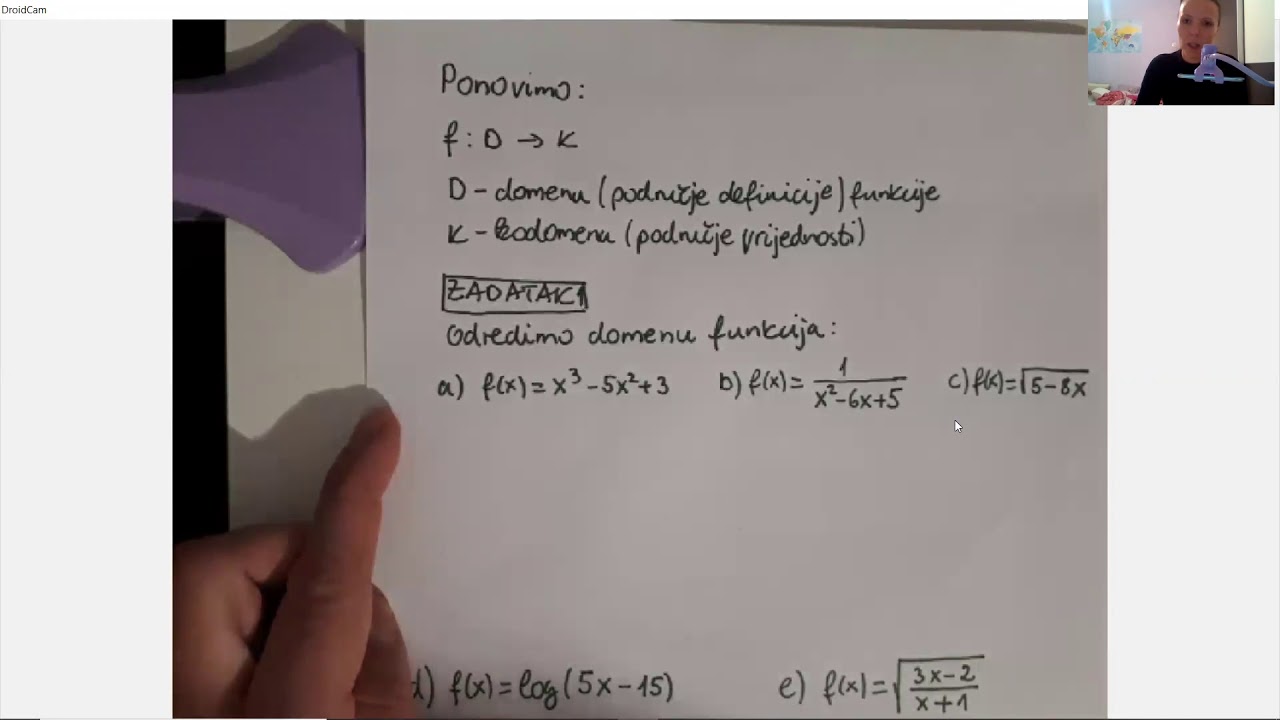 DroidCam
Ponovimo:
f: D → K
D - domena (područje definicije) funkcije
K - kodomena (područje vrijednosti)
ZADATAK 1
Odredimo domenu funkcija:
a) f(x) = x³ - 5x² + 3 b) f(x) = 1/(x² - 6x + 5) c) f(x) = √(5 - 8x)
d) f(x) = log(5x - 15) e) f(x) = √((3x - 2)/(x + 1))